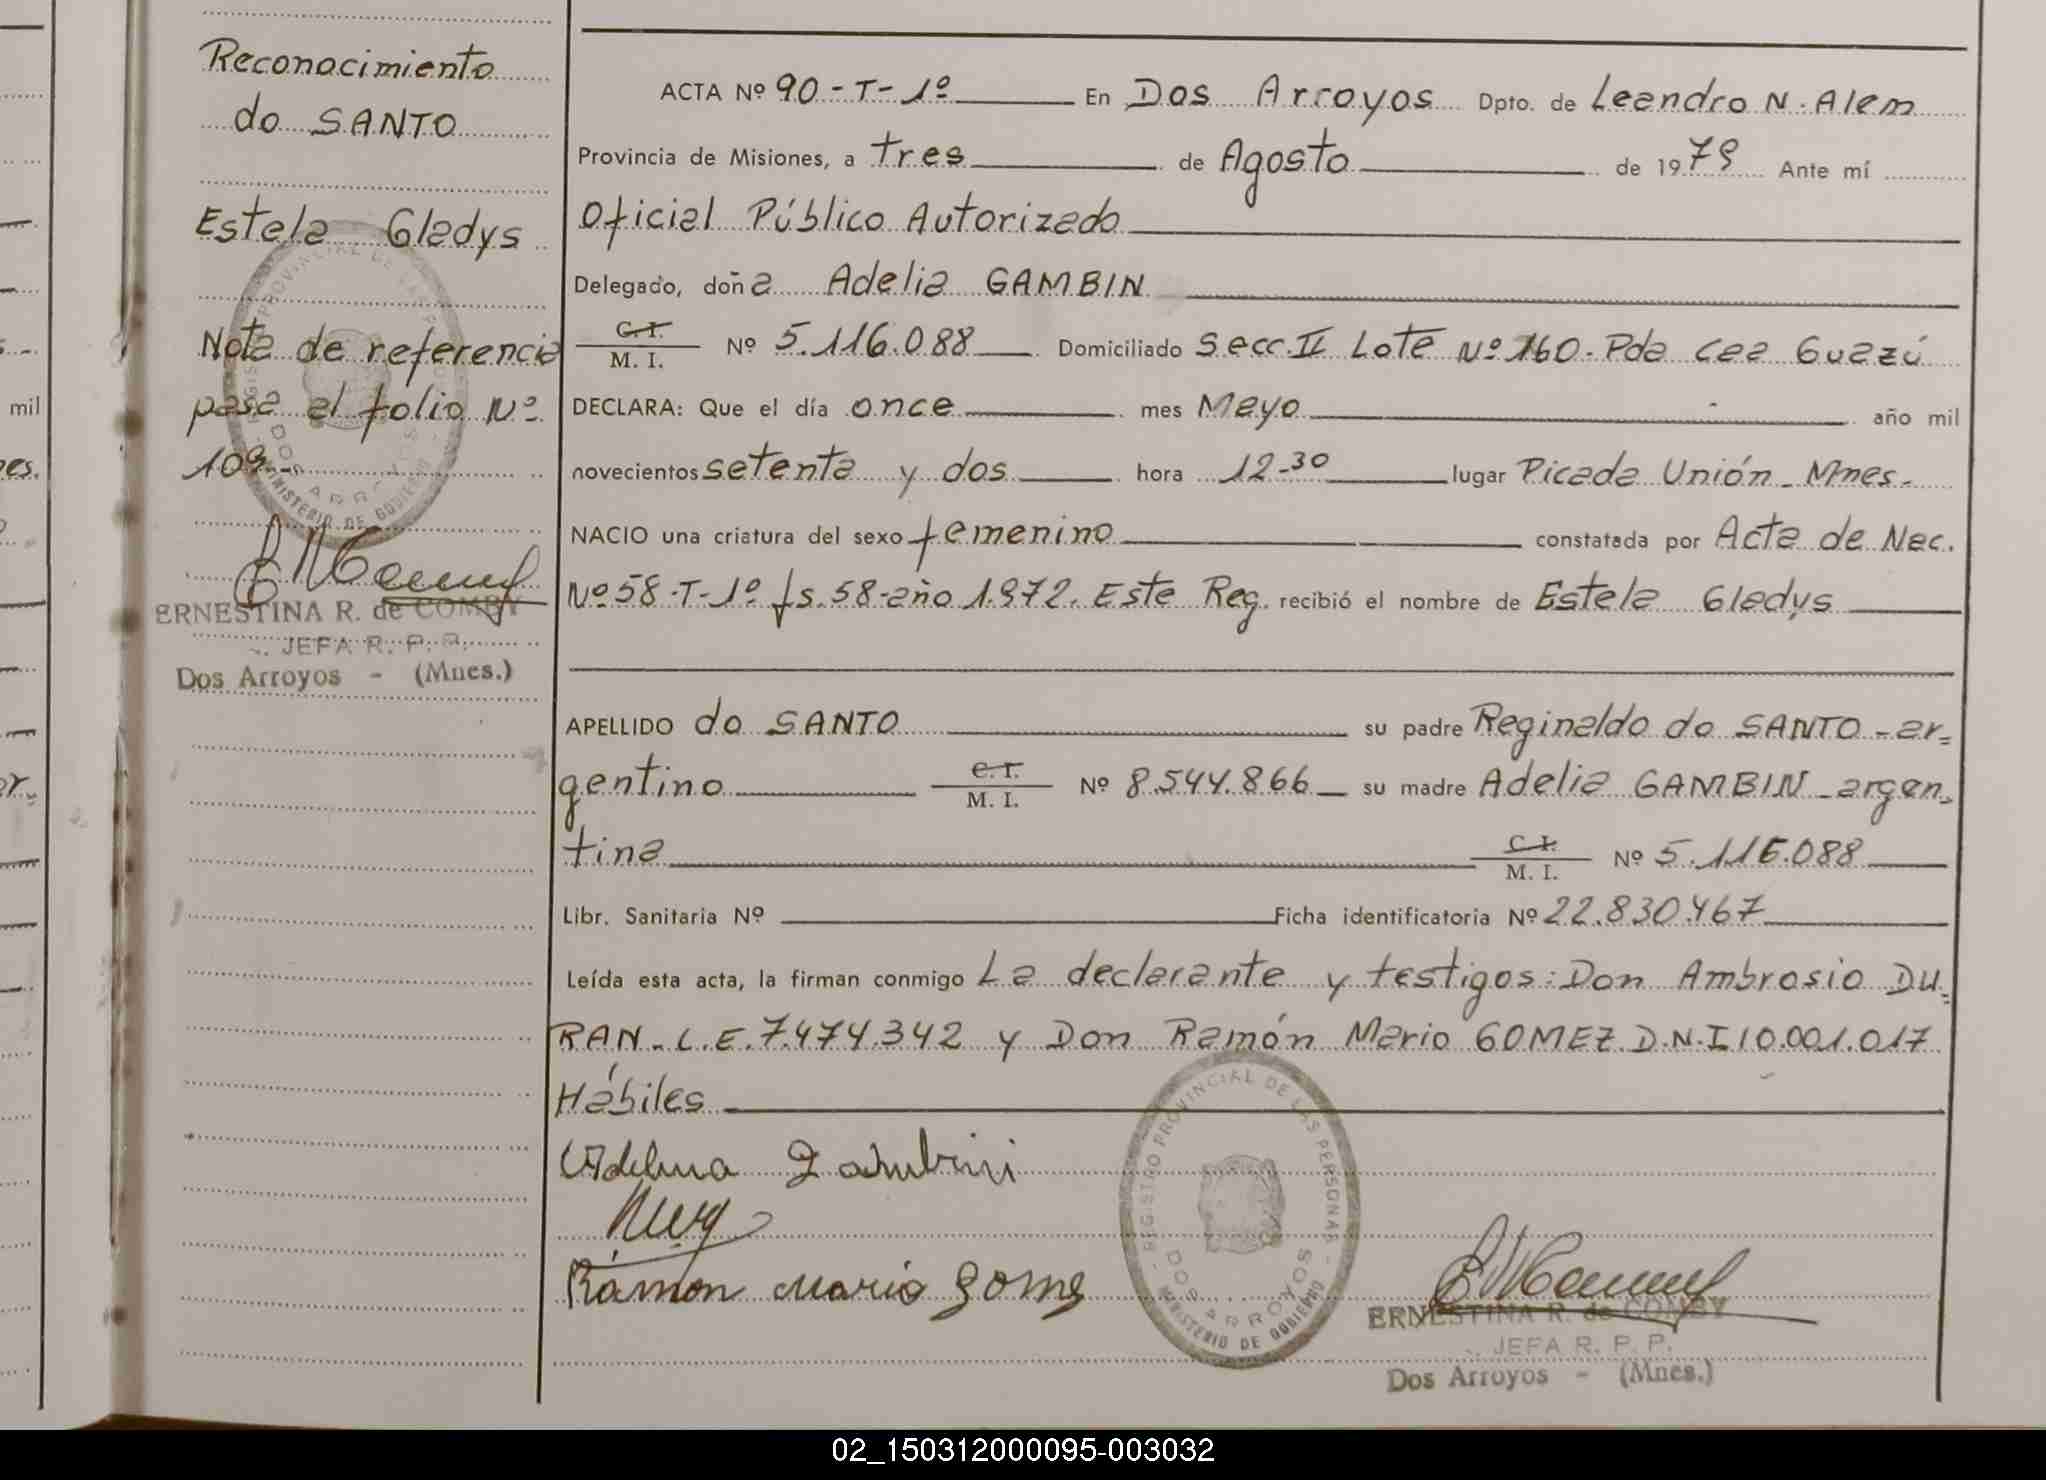 Reconocimiento
do SANTO
Estela Gladys
Nota de referencia
pasa al folio Nº
109.-
ERNESTINA R. de COMBY
JEFA R. P. P.
Dos Arroyos - (Mnes.)
ACTA Nº 90-T-1º En Dos Arroyos Dpto. de Leandro N. Alem
Provincia de Misiones, a tres de Agosto de 1979 Ante mí
Oficial Público Autorizado
Delegado, doña Adelia GAMBIN
C.I. M. I. Nº 5.116.088 Domiciliado Secc. II Lote Nº 160. Pda Caa Guazú
DECLARA: Que el día once mes Mayo año mil
novecientos setenta y dos hora 12-30 lugar Picada Unión - Mnes-
NACIO una criatura del sexo femenino constatada por Acta de Nac.
Nº 58-T-1º fs. 58-año 1.972. Este Reg. recibió el nombre de Estela Gladys
APELLIDO do SANTO su padre Reginaldo do SANTO - ar=
gentino C.I. M. I. Nº 8.544.866 su madre Adelia GAMBIN - argen=
tina C.I. M. I. Nº 5.116.088
Libr. Sanitaria Nº Ficha identificatoria Nº 22.830.467
Leída esta acta, la firman conmigo La declarante y testigos: Don Ambrosio DU=
RAN - L.E. 7.474.342 y Don Ramón Mario GOMEZ D.N.I 10.001.017
Hábiles
Ramon Mario Gomez
REGISTRO PROVINCIAL DE LAS PERSONAS
DOS ARROYOS
MINISTERIO DE GOBIERNO
ERNESTINA R. de COMBY
JEFA R. P. P.
Dos Arroyos - (Mnes.)
02_150312000095-003032